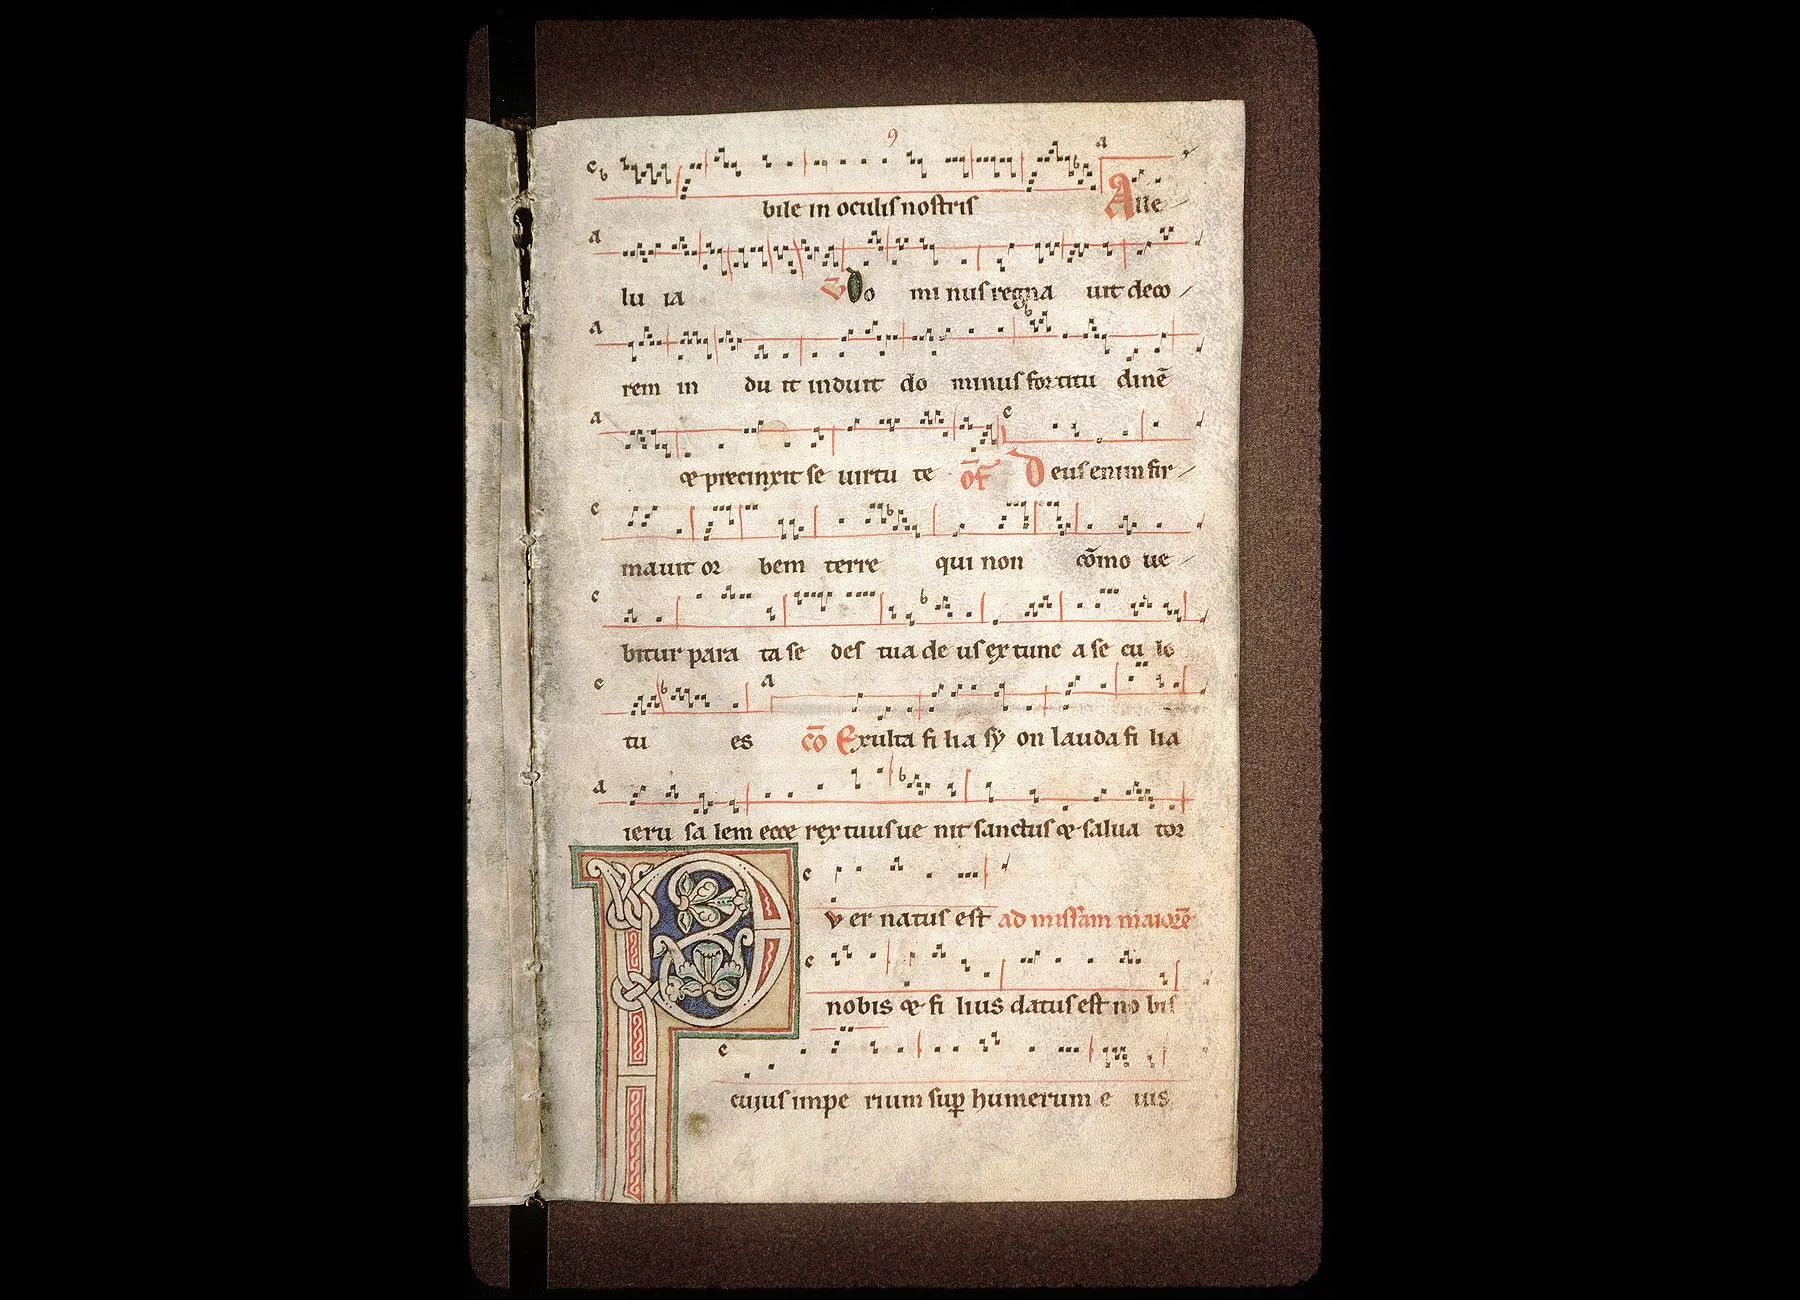 9
bile in oculis nostris Alle
lu ia ℣ Do mi nus regna uit deco
rem in du it induit do minus fortitu dinē
& precinxit se uirtu te of̄ Deus enim fir
mauit or bem terre qui non cōmo ue
bitur para ta se des tua de us ex tunc a se cu lo
tu es cō Exulta fi lia sy on lauda fi lia
ieru sa lem ecce rex tuus ue nit sanctus & salua tor
P v er natus est ad missam maiorē
nobis & fi lius datus est no bis
cuius impe rium sup humerum e ius